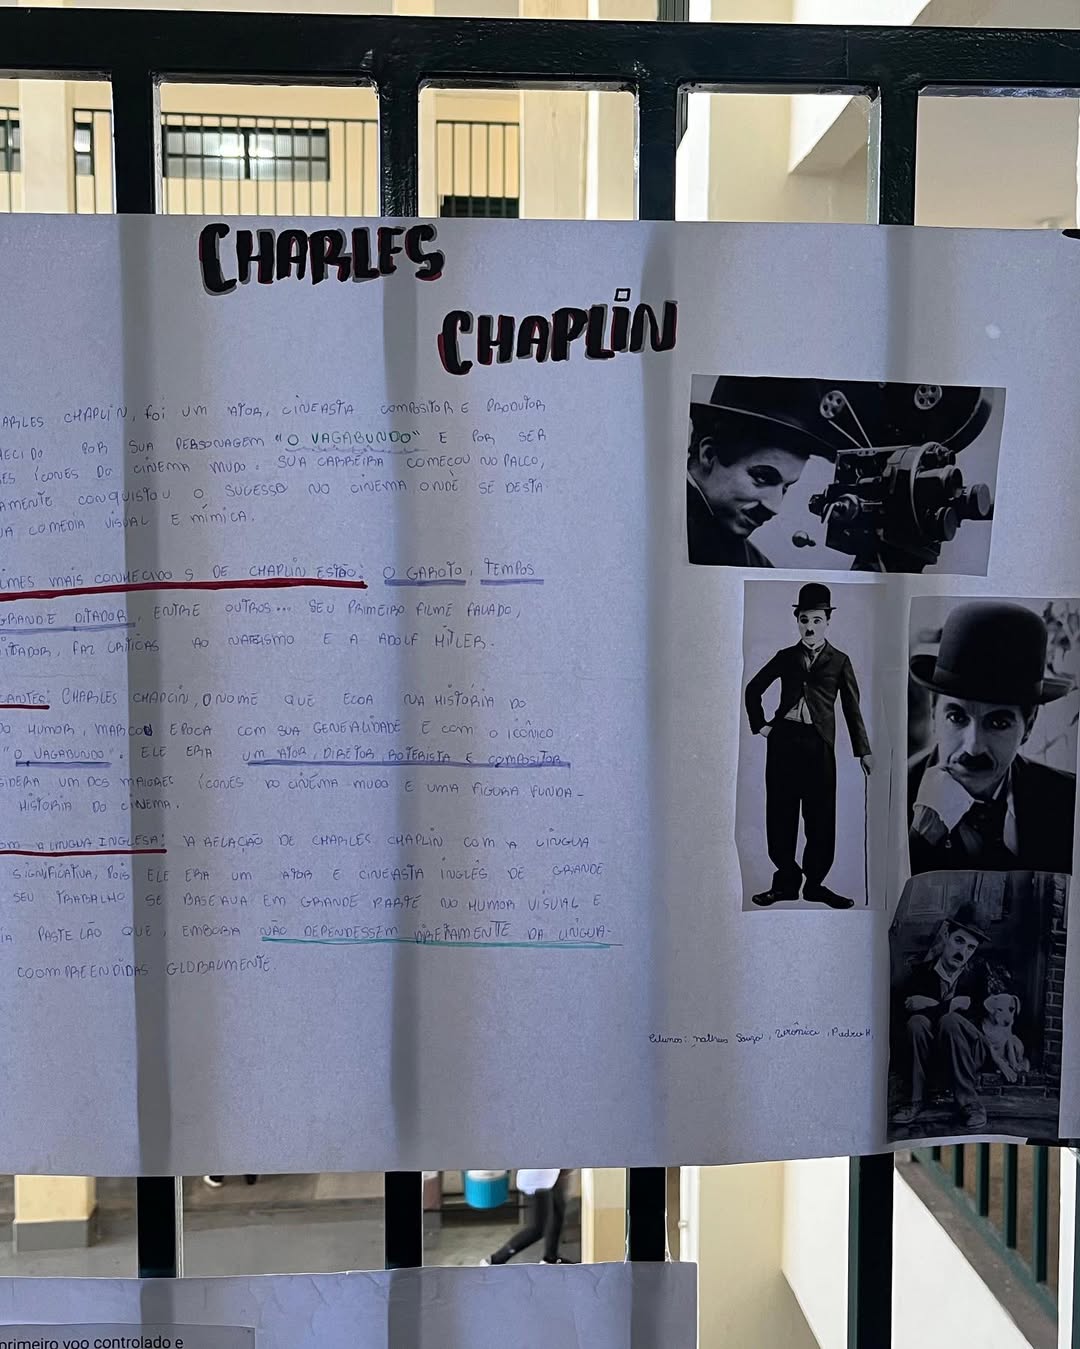 CHARLES
CHAPLIN
ARLES CHAPLIN, foi UM ATOR, CINEASTA COMPOSITOR E PRODUTOR
HECIDO POR SUA PERSONAGEM "O VAGABUNDO" E POR SER
ES ÍCONES DO CINEMA MUDO. SUA CARREIRA COMEÇOU NO PALCO,
AMENTE CONQUISTOU O SUCESSO NO CINEMA, ONDE SE DESTA-
UA COMEDIA VISUAL E MÍMICA.
LMES MAIS CONHECIDOS DE CHAPLIN ESTÃO: O GAROTO, TEMPOS
GRANDE DITADOR, ENTRE OUTROS... SEU PRIMEIRO FILME FALADO,
ITADOR, FAZ CRÍTICAS AO NAZISMO E A ADOLF HITLER.
ANTES: CHARLES CHAPLIN, O NOME QUE ECOA NA HISTÓRIA DO
DO HUMOR, MARCOU EPOCA COM SUA GENIALIDADE E COM O ICÔNICO
"O VAGABUNDO". ELE ERA UM ATOR, DIRETOR, ROTERISTA E COMPOSITOR
SIDERA UM DOS MAIORES ÍCONES DO CINÉMA MUDO E UMA FIGURA FUNDA-
HISTÓRIA DO CINEMA.
OM A LINGUA INGLESA: A RELAÇÃO DE CHARLES CHAPLIN COM A LÍNGUA
SIGNIFICATIVA, POIS ELE ERA UM ATOR E CINEASTA INGLÊS DE GRANDE
SEU TRABALHO SE BASEAVA EM GRANDE PARTE NO HUMOR VISUAL E
IA PASTELÃO QUE, EMBORA NÃO DEPENDESSEM DIRETAMENTE DA LÍNGUA-
COOMPREENDIDAS GLOBALMENTE.
Alunos: Matheus Souza, Verônica, Pedro H,
primeiro voo controlado e